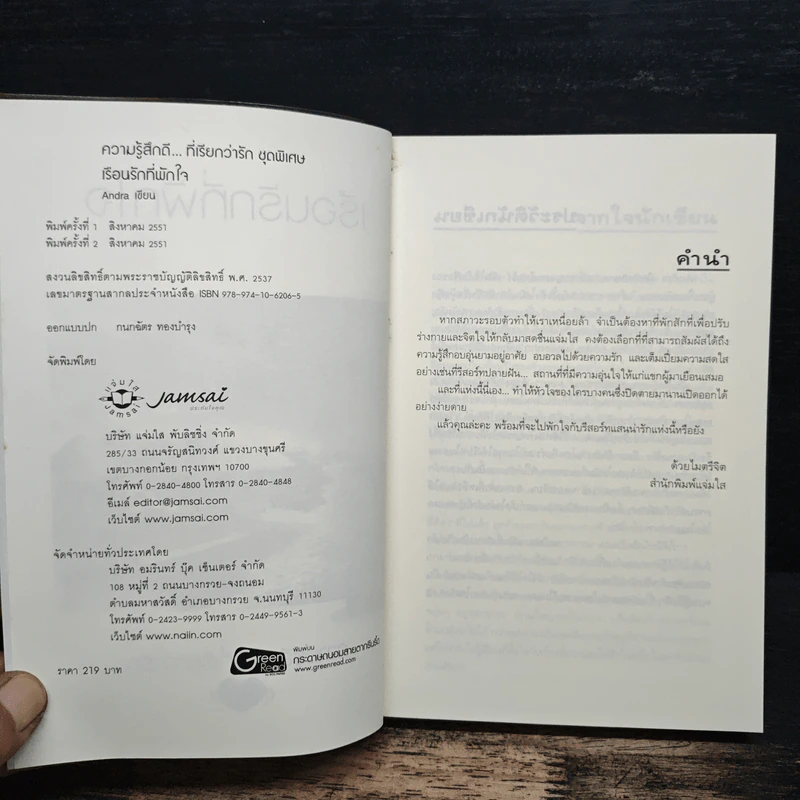 ความรู้สึกดี... ที่เรียกว่ารัก ชุดพิเศษ
เรือนรักที่พักใจ
Andra เขียน
พิมพ์ครั้งที่ 1 สิงหาคม 2551
พิมพ์ครั้งที่ 2 สิงหาคม 2551
สงวนลิขสิทธิ์ตามพระราชบัญญัติลิขสิทธิ์ พ.ศ. 2537
เลขมาตรฐานสากลประจำหนังสือ ISBN 978-974-10-6206-5
ออกแบบปก กนกฉัตร ทองบำรุง
จัดพิมพ์โดย
แจ่มใส
Jamsai
Jamsai
บริษัท แจ่มใส พับลิชชิ่ง จำกัด
285/33 ถนนจรัญสนิทวงศ์ แขวงบางขุนศรี
เขตบางกอกน้อย กรุงเทพฯ 10700
โทรศัพท์ 0-2840-4800 โทรสาร 0-2840-4848
อีเมล์ editor@jamsai.com
เว็บไซต์ www.jamsai.com
จัดจำหน่ายทั่วประเทศโดย
บริษัท อมรินทร์ บุ๊ค เซ็นเตอร์ จำกัด
108 หมู่ที่ 2 ถนนบางกรวย-จงถนอม
ตำบลมหาสวัสดิ์ อำเภอบางกรวย จ.นนทบุรี 11130
โทรศัพท์ 0-2423-9999 โทรสาร 0-2449-9561-3
เว็บไซต์ www.naiin.com
ราคา 219 บาท
Green Read
พิมพ์บน
กระดาษถนอมสายตากรีนรี้ด
www.greenread.com
คำนำ
หากสภาวะรอบตัวทำให้เราเหนื่อยล้า จำเป็นต้องหาที่พักสักที่เพื่อปรับ
ร่างกายและจิตใจให้กลับมาสดชื่นแจ่มใส คงต้องเลือกที่ที่สามารถสัมผัสได้ถึง
ความรู้สึกอบอุ่นยามอยู่อาศัย อบอวลไปด้วยความรัก และเต็มเปี่ยมความสดใส
อย่างเช่นที่รีสอร์ทปลายฝัน... สถานที่ที่มีความอุ่นใจให้แก่แขกผู้มาเยือนเสมอ
และที่แห่งนี้นี่เอง... ทำให้หัวใจของใครบางคนซึ่งปิดตายมานานเปิดออกได้
อย่างง่ายดาย
แล้วคุณล่ะคะ พร้อมที่จะไปพักใจกับรีสอร์ทแสนน่ารักแห่งนี้หรือยัง
ด้วยไมตรีจิต
สำนักพิมพ์แจ่มใส